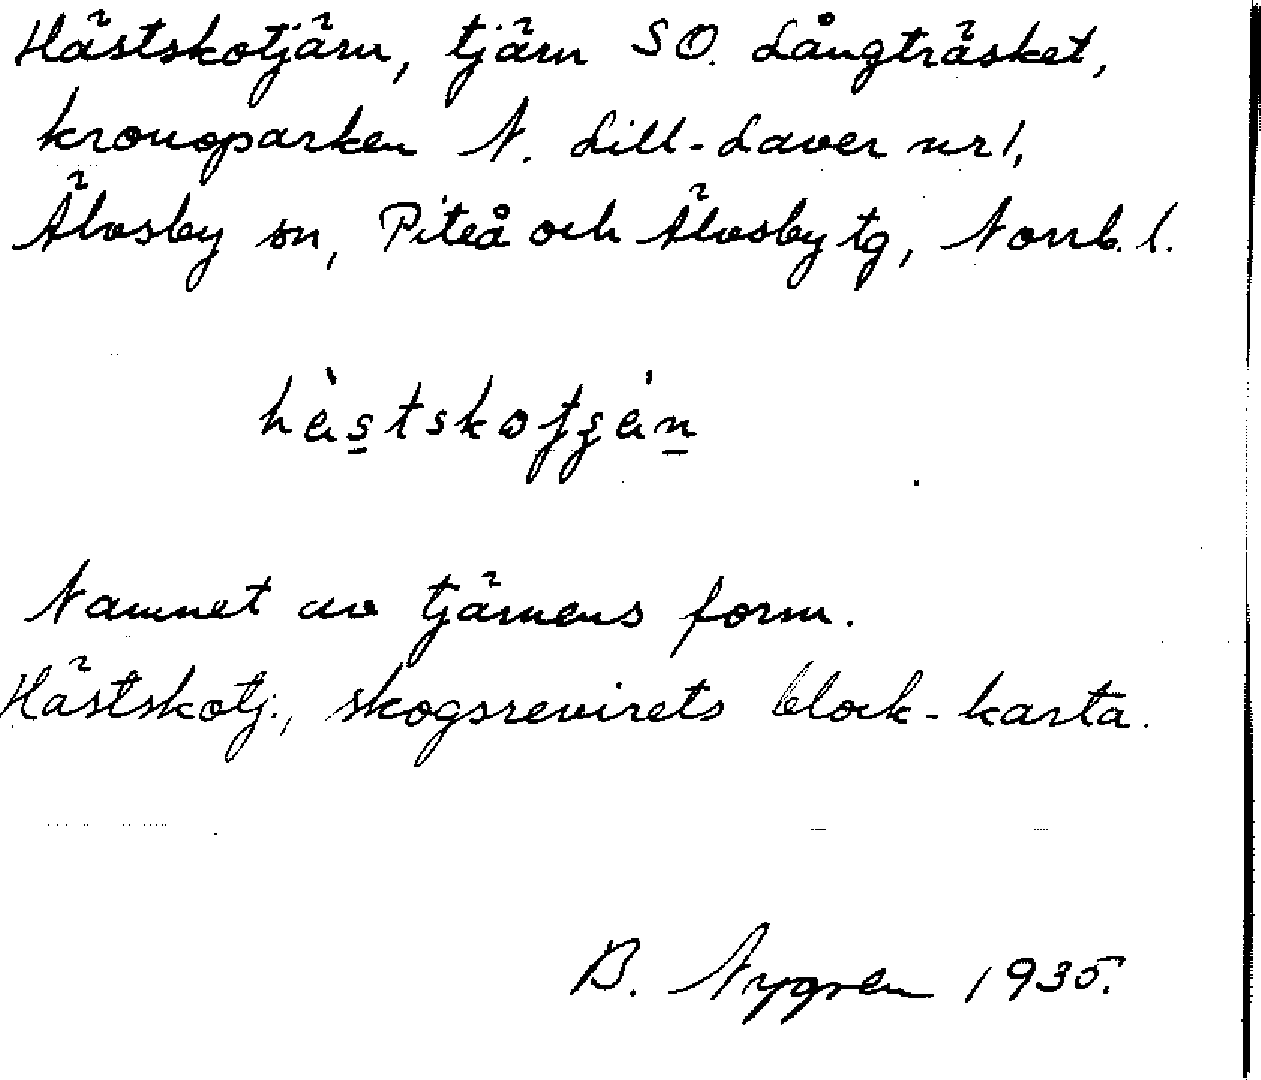 Hästskotjärn, tjärn SO. Långträsket,
kronoparken N. Lill-Laver nr 1,
Älvsby sn, Piteå och Älvsby tg, Norrb. l.
Namnet av tjärnens form.
Hästskotj., skogsrevirets block-karta.
B. Nygren 1935.